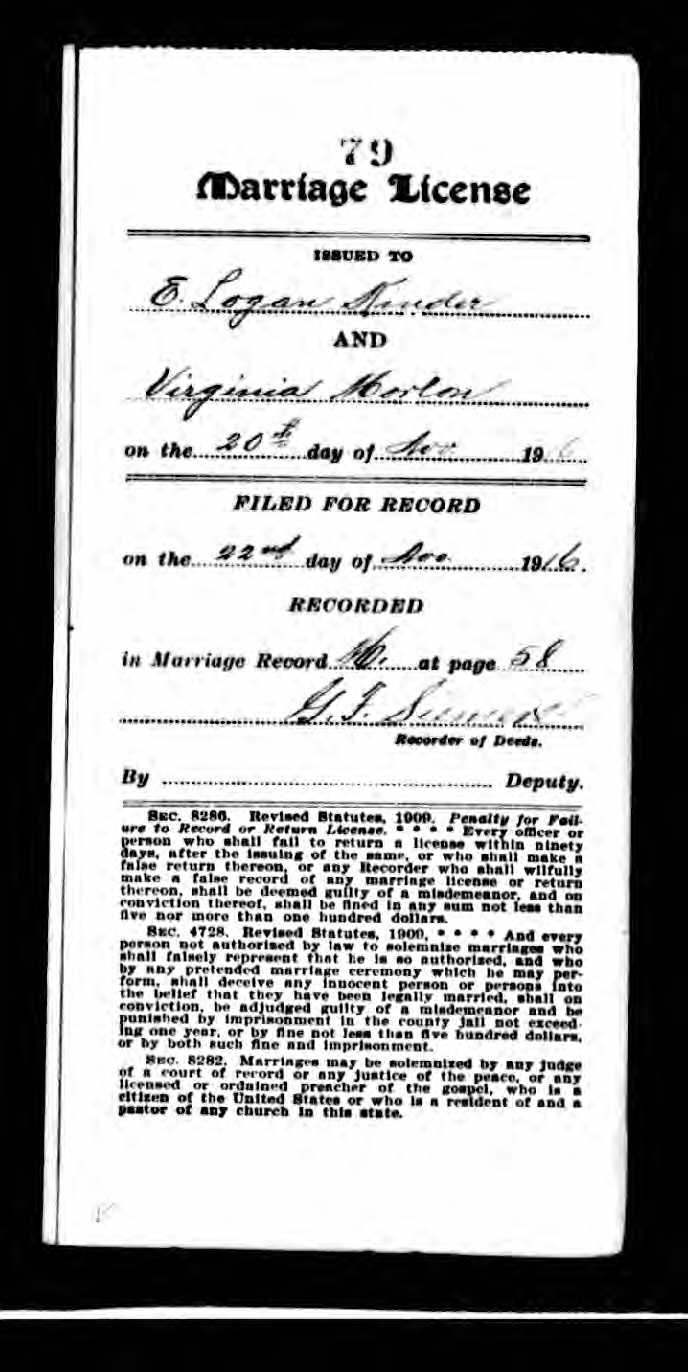 79
Marriage License
ISSUED TO
E. Logan Kinder
AND
Virginia Morlon
on the 20th day of Nov 1916
FILED FOR RECORD
on the 22nd day of Nov 1916.
RECORDED
in Marriage Record at page 58
G. F.
Recorder of Deeds.
By Deputy.
SEC. 8286. Revised Statutes, 1909. Penalty for Fail-
ure to Record or Return License. * * * * Every officer or
person who shall fail to return a license within ninety
days, after the issuing of the same, or who shall make a
false return thereon, or any Recorder who shall wilfully
make a false record of any marriage license or return
thereon, shall be deemed guilty of a misdemeanor, and on
conviction thereof, shall be fined in any sum not less than
five nor more than one hundred dollars.
SEC. 4728. Revised Statutes, 1909, * * * * And every
person not authorized by law to solemnize marriages who
shall falsely represent that he is so authorized, and who
by any pretended marriage ceremony which he may per-
form, shall deceive any innocent person or persons into
the belief that they have been legally married, shall on
conviction, be adjudged guilty of a misdemeanor and be
punished by imprisonment in the county jail not exceed-
ing one year, or by fine not less than five hundred dollars,
or by both such fine and imprisonment.
SEC. 8282. Marriages may be solemnized by any judge
of a court of record or any justice of the peace, or any
licensed or ordained preacher of the gospel, who is a
citizen of the United States or who is a resident of and a
pastor of any church in this state.